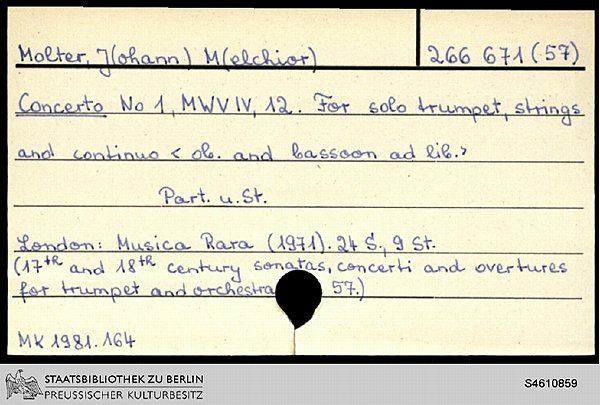 Molter, J(ohann) M(elchior) 266 671 (57)
Concerto No 1, MWV IV, 12. For solo trumpet, strings
and continuo < ob. and bassoon ad lib.>
Part. u. St.
London: Musica Rara (1971). 24 S., 9 St.
(17th and 18th century sonatas, concerti and overtures
for trumpet and orchestra 57.)
MK 1981.164
STAATSBIBLIOTHEK ZU BERLIN
PREUSSISCHER KULTURBESITZ
S4610859